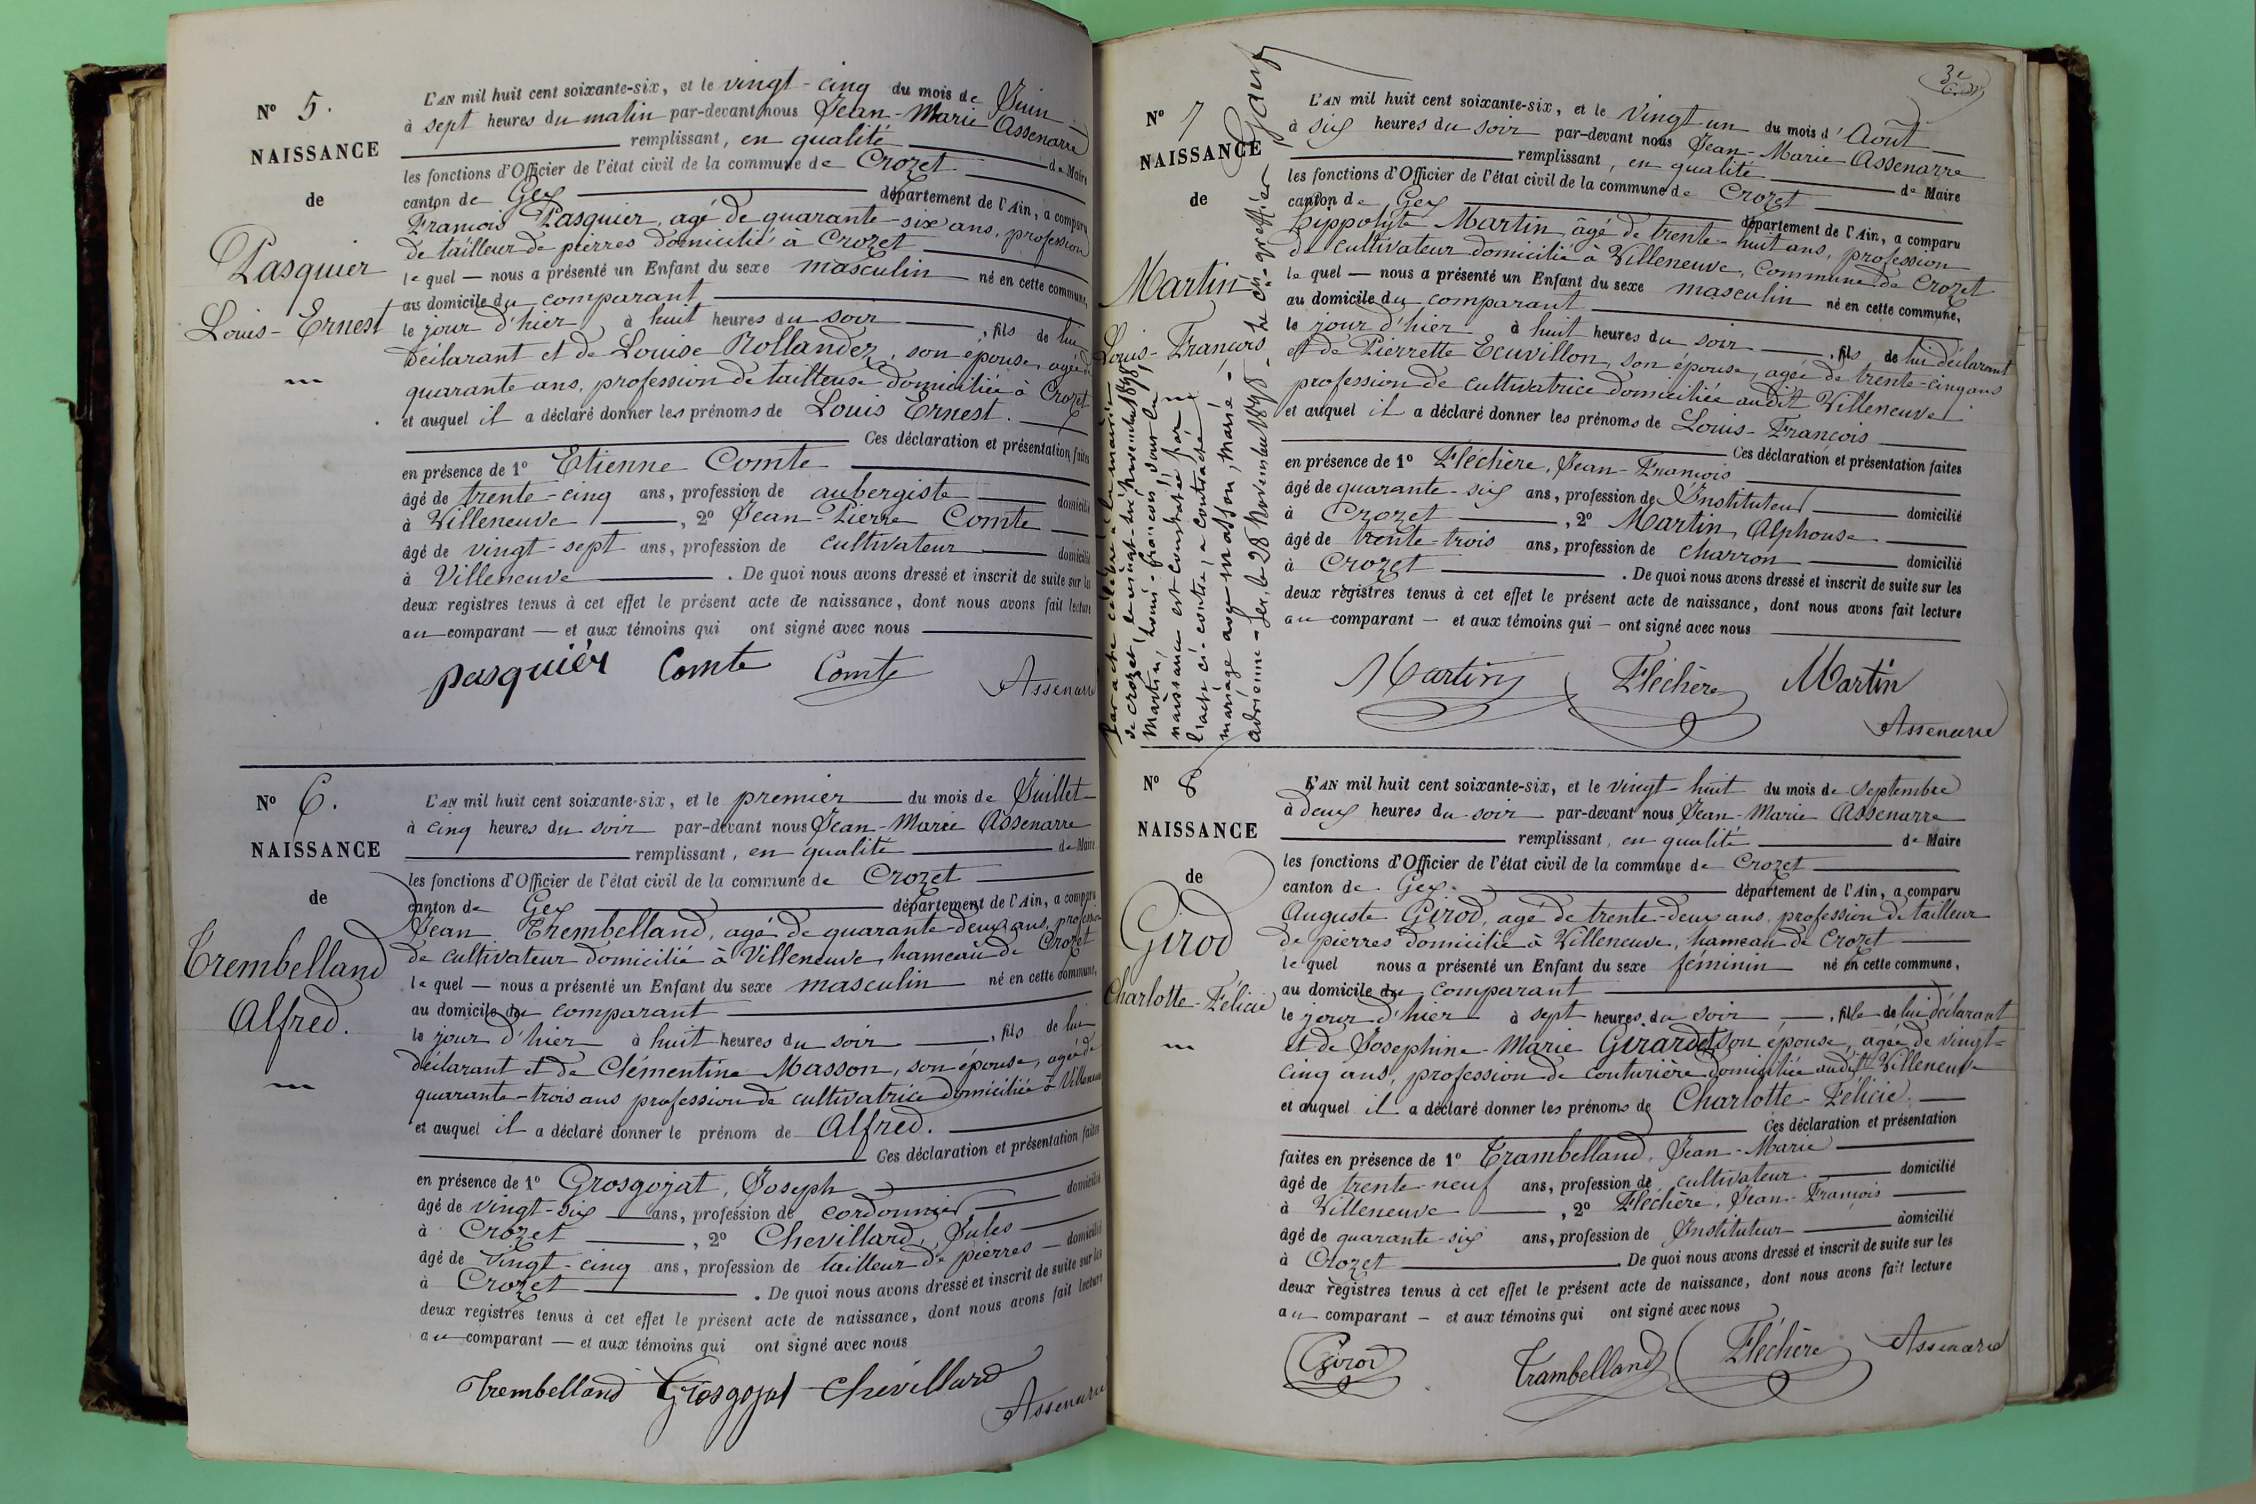 N° 5.
NAISSANCE
de
Pasquier
Louis-Ernest
L'AN mil huit cent soixante-six, et le vingt-cinq du mois de Juin
à sept heures du matin par-devant nous Jean-Marie Assenarre
remplissant, en qualité de Maire
les fonctions d'Officier de l'état civil de la commune de Crozet
canton de Gex département de l'Ain, a comparu
François Pasquier, agé de quarante-six ans, profession
de tailleur de pierres domicilié à Crozet
le quel — nous a présenté un Enfant du sexe masculin né en cette commune,
au domicile du comparant
le jour d'hier à huit heures du soir, fils de lui
déclarant et de Louise Rollandez, son épouse, agée de
quarante ans, profession de tailleuse domiciliée à Crozet
et auquel il a déclaré donner les prénoms de Louis Ernest.
Ces déclaration et présentation faites
en présence de 1° Etienne Comte
âgé de trente-cinq ans, profession de aubergiste domicilié
à Villeneuve, 2° Jean-Pierre Comte
âgé de vingt-sept ans, profession de cultivateur domicilié
à Villeneuve. De quoi nous avons dressé et inscrit de suite sur les
deux registres tenus à cet effet le présent acte de naissance, dont nous avons fait lecture
au comparant — et aux témoins qui ont signé avec nous
pasquiér Comte Comte Assenarre
N° 6.
NAISSANCE
de
Trembelland
Alfred.
L'AN mil huit cent soixante-six, et le premier du mois de Juillet
à cinq heures du soir par-devant nous Jean-Marie Assenarre
remplissant, en qualité de Maire
les fonctions d'Officier de l'état civil de la commune de Crozet
canton de Gex département de l'Ain, a comparu
Jean Trembelland, agé de quarante-deux ans, profession
de cultivateur domicilié à Villeneuve, hameau de Crozet
le quel — nous a présenté un Enfant du sexe masculin né en cette commune,
au domicile du comparant
le jour d'hier à huit heures du soir, fils de lui
déclarant et de Clémentine Masson, son épouse, agée de
quarante-trois ans profession de cultivatrice domiciliée à Villeneuve
et auquel il a déclaré donner le prénom de Alfred.
Ces déclaration et présentation faites
en présence de 1° Grosgojat, Joseph
âgé de vingt-six ans, profession de cordonnier domicilié
à Crozet, 2° Chevillard, Jules
âgé de vingt-cinq ans, profession de tailleur de pierres domicilié
à Crozet. De quoi nous avons dressé et inscrit de suite sur les
deux registres tenus à cet effet le présent acte de naissance, dont nous avons fait lecture
au comparant — et aux témoins qui ont signé avec nous
Trembelland Grosgojat Chevillard
Assenarre
N° 7
NAISSANCE
de
Martin
Louis-François
Par acte célébré à la mairie
de Crozet, le vingt-six novembre 1898,
Martin, Louis-françois, dont la
naissance est constatée par
l'acte ci-contre, a contracté
mariage avec masson, Marie-
adrienne - Gex, le 28 Novembre 1898 - Le ch. greffier
L'AN mil huit cent soixante-six, et le Vingt-un du mois d'Août
à six heures du soir par-devant nous Jean-Marie Assenarre
remplissant, en qualité de Maire
les fonctions d'Officier de l'état civil de la commune de Crozet
canton de Gex département de l'Ain, a comparu
Hippolyte Martin, âgé de trente-huit ans, profession
de cultivateur domicilié à Villeneuve, Commune de Crozet
le quel — nous a présenté un Enfant du sexe masculin né en cette commune,
au domicile du comparant
le jour d'hier à huit heures du soir, fils de lui déclarant
et de Pierrette Ecuvillon, son épouse, agée de trente-cinq ans
profession de cultivatrice domiciliée audit Villeneuve
et auquel il a déclaré donner les prénoms de Louis-François
Ces déclaration et présentation faites
en présence de 1° Fléchère, Jean-François
âgé de quarante-six ans, profession de Instituteur domicilié
à Crozet, 2° Martin, Alphonse
âgé de trente-trois ans, profession de charron domicilié
à Crozet. De quoi nous avons dressé et inscrit de suite sur les
deux registres tenus à cet effet le présent acte de naissance, dont nous avons fait lecture
au comparant — et aux témoins qui — ont signé avec nous
Martin Fléchère Martin
Assenarre
N° 8
NAISSANCE
de
Girod
Charlotte-Félicie
L'AN mil huit cent soixante-six, et le vingt-huit du mois de Septembre
à deux heures du soir par-devant nous Jean-Marie Assenarre
remplissant, en qualité de Maire
les fonctions d'Officier de l'état civil de la commune de Crozet
canton de Gex. département de l'Ain, a comparu
Auguste Girod, agé de trente-deux ans, profession de tailleur
de pierres domicilié à Villeneuve, hameau de Crozet
le quel nous a présenté un Enfant du sexe féminin né en cette commune,
au domicile du comparant
le jour d'hier à sept heures du soir, fille de lui déclarant
et de Josephine-Marie Girardet son épouse, agée de vingt-
cinq ans, profession de couturière domiciliée audit Villeneuve
et auquel il a déclaré donner les prénoms de Charlotte-Félicie.
Ces déclaration et présentation
faites en présence de 1° Trambelland, Jean-Marie
âgé de trente-neuf ans, profession de cultivateur domicilié
à Villeneuve, 2° Fléchère, Jean-François
âgé de quarante-six ans, profession de Instituteur domicilié
à Crozet. De quoi nous avons dressé et inscrit de suite sur les
deux registres tenus à cet effet le présent acte de naissance, dont nous avons fait lecture
au comparant — et aux témoins qui ont signé avec nous
Girod Trambelland Fléchère Assenarre